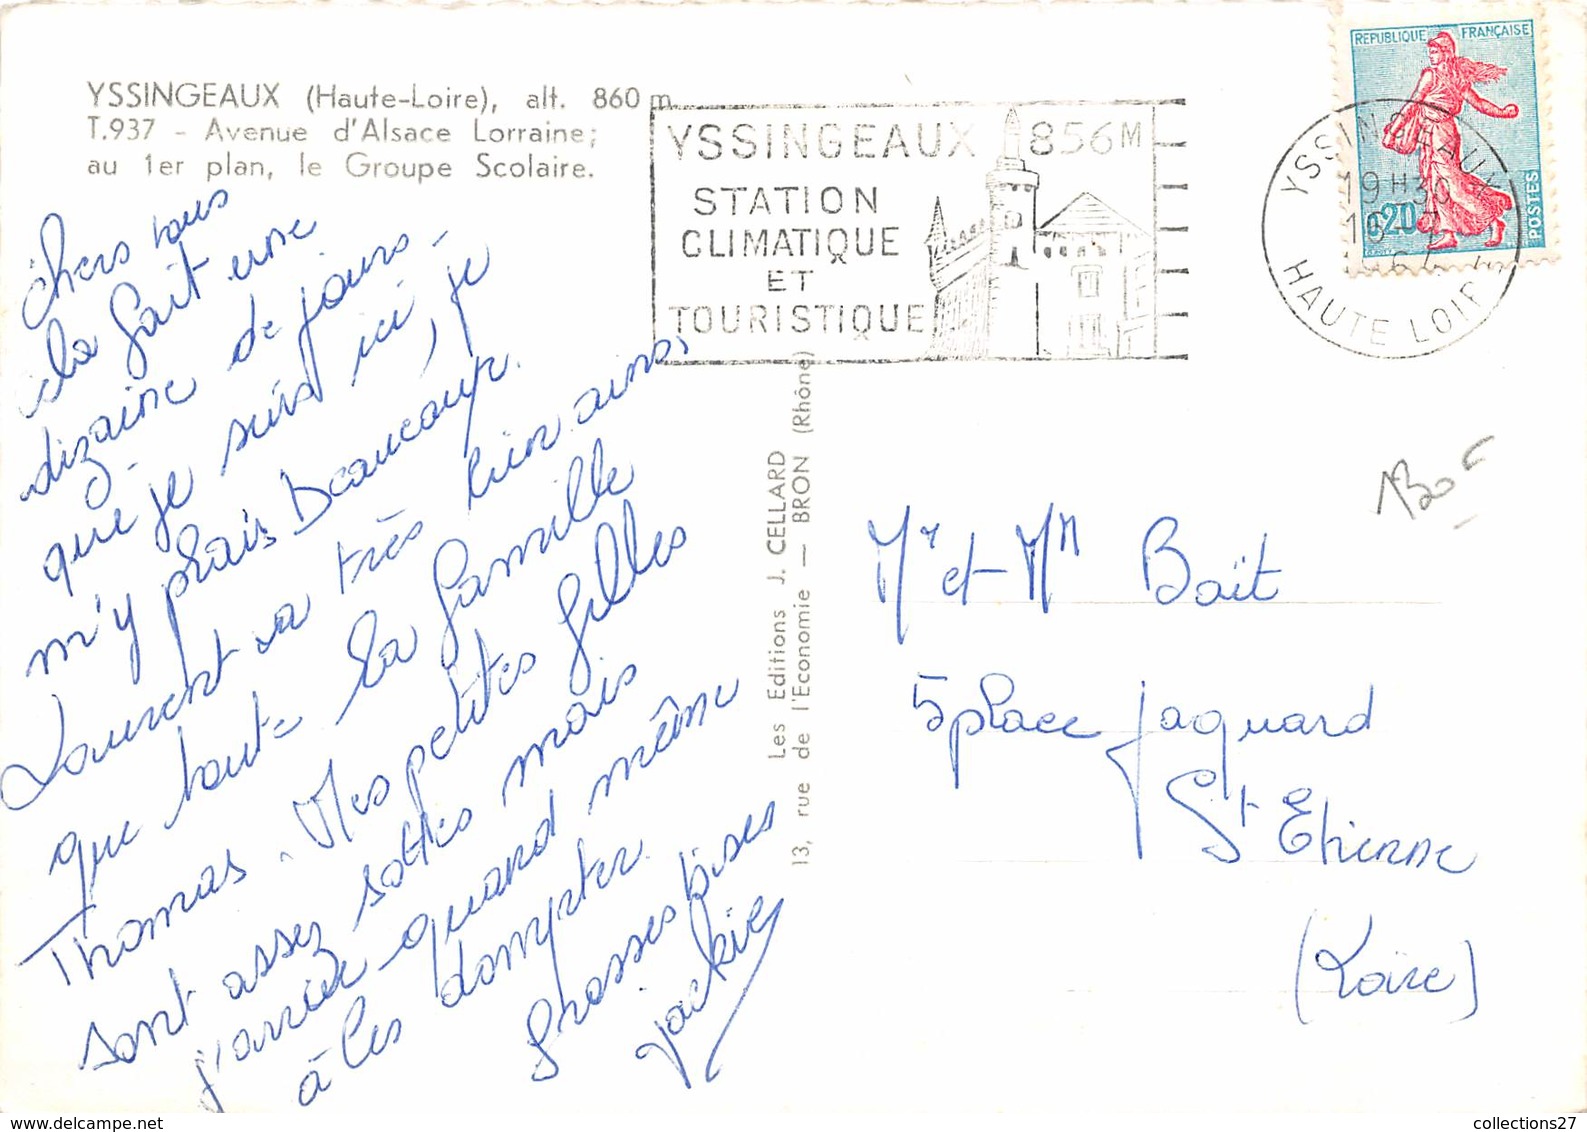 YSSINGEAUX (Haute-Loire), alt. 860 m
T.937 - Avenue d'Alsace Lorraine;
au 1er plan, le Groupe Scolaire.
YSSINGEAUX 856M
STATION
CLIMATIQUE
ET
TOURISTIQUE
REPUBLIQUE FRANÇAISE
0,20
POSTES
YSSINGEAUX
19H30
HAUTE LOIRE
chers tous
cela fait une
dizaine de jours
que je suis ici, je
m'y plais beaucoup.
Laurent va très bien ainsi
que toute la famille
Thomas. Mes petites filles
sont assez sottes mais
j'arrive quand même
à les dompter.
Grosses bises
Jackie
Les Editions J. CELLARD
13, rue de l'Economie — BRON (Rhône)
130F
Mr et Mm Boït
5 place Jaquard
St Etienne
(Loire)
collections27